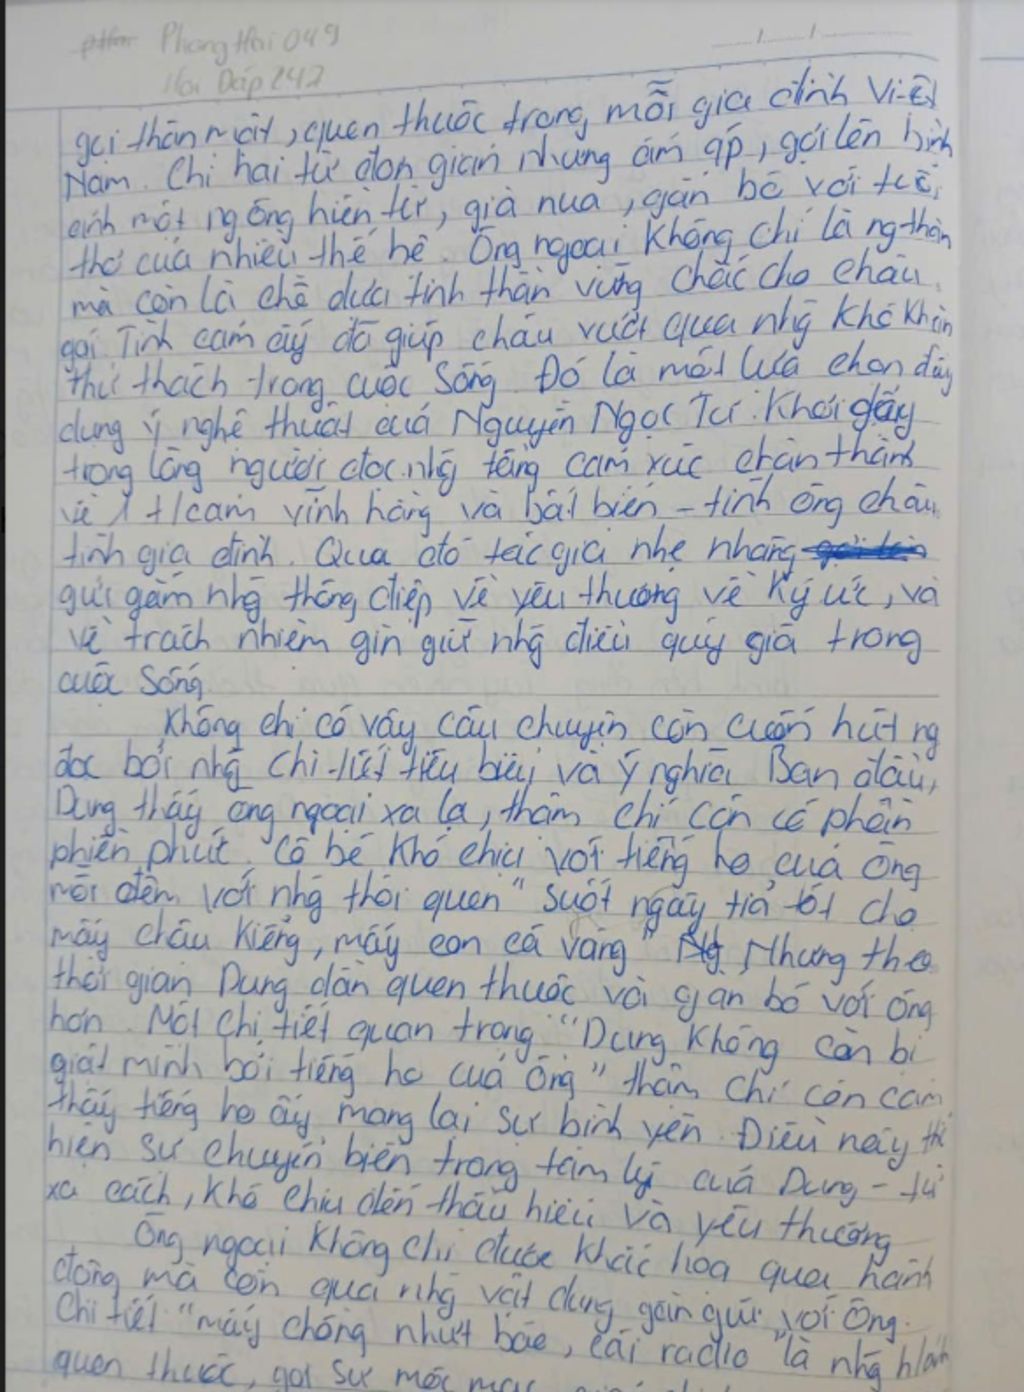 Phong Hải 049
Hỏi Đáp 247
gọi thân mật, quen thuộc trong mỗi gia đình Việt
Nam. Chỉ hai từ đơn giản nhưng ấm áp, gợi lên hình
ảnh một ng ông hiền từ, già nua, gắn bó với tuổi
thơ của nhiều thế hệ. Ông ngoại không chỉ là ng thân
mà còn là chỗ dựa tinh thần vững chắc cho cháu
gái. Tình cảm ấy đã giúp cháu vượt qua nhg khó khăn
thử thách trong cuộc sống. Đó là một lựa chọn đầy
dụng ý nghệ thuật của Nguyễn Ngọc Tư. Khơi dậy
trong lòng người đọc nhg tầng cảm xúc chân thành
về 1 t/cảm vĩnh hằng và bất biến - tình ông cháu,
tình gia đình. Qua đó tác giả nhẹ nhàng
gửi gắm nhg thông điệp về yêu thương về ký ức, và
về trách nhiệm gìn giữ nhg điều quý giá trong
cuộc sống.
Không chỉ có vậy câu chuyện còn cuốn hút ng
đọc bởi nhg chi tiết tiêu biểu và ý nghĩa. Ban đầu,
Dung thấy ông ngoại xa lạ, thậm chí còn có phần
phiền phức. Cô bé khó chịu với tiếng ho của ông
mỗi đêm với nhg thói quen "suốt ngày tỉa tót cho
mấy chậu kiểng, mấy con cá vàng" Nhưng theo
thời gian Dung dần quen thuộc và gắn bó với ông
hơn. Một chi tiết quan trọng "Dung không còn bị
giật mình bởi tiếng ho của ông" thậm chí còn cảm
thấy tiếng ho ấy mang lại sự bình yên. Điều này thể
hiện sự chuyển biến trong tâm lý của Dung - từ
xa cách, khó chịu đến thấu hiểu và yêu thương
Ông ngoại không chỉ được khắc họa qua hành
động mà còn qua nhg vật dụng gần gũi với ông.
Chi tiết "mấy chồng nhựt báo, cái radio" là nhg h/ảnh
quen thuộc, gợi sự mộc mạc